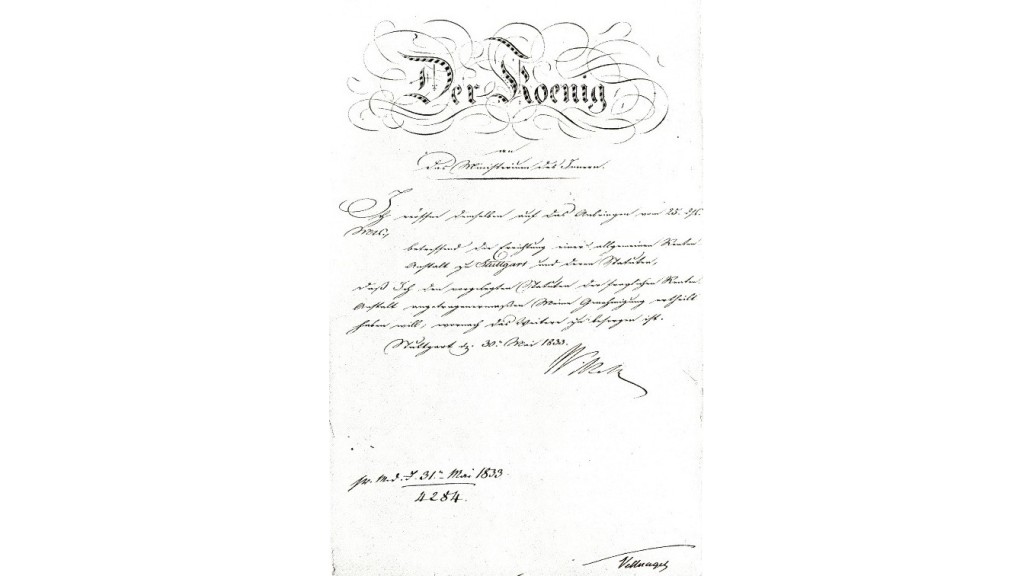 Der Koenig
an
das Ministerium des Innern.
Ich eröffne demselben auf das Anbringen vom 25. d.
Mts.,
betreffend die Errichtung einer allgemeinen Renten
Anstalt zu Stuttgart und deren Statuten,
daß Ich den vorgelegten Statuten der fraglichen Renten
Anstalt angetragenermaßen Meine Genehmigung ertheilt
haben will, wornach das Weitere zu besorgen ist.
Stuttgart d. 30. Mai 1833.
Wilhelm
pr. M. d. I. 31. Mai 1833
4284.
Vellnagel